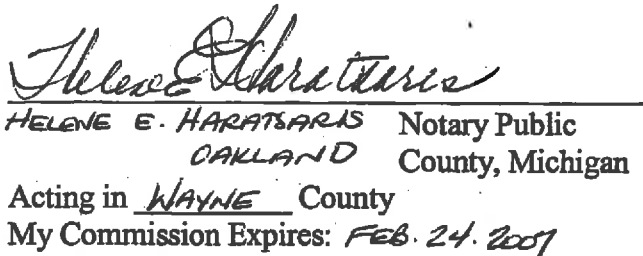 Helene E Haratsaris
HELENE E. HARATSARIS Notary Public
OAKLAND County, Michigan
Acting in WAYNE County
My Commission Expires: FEB. 24. 2007